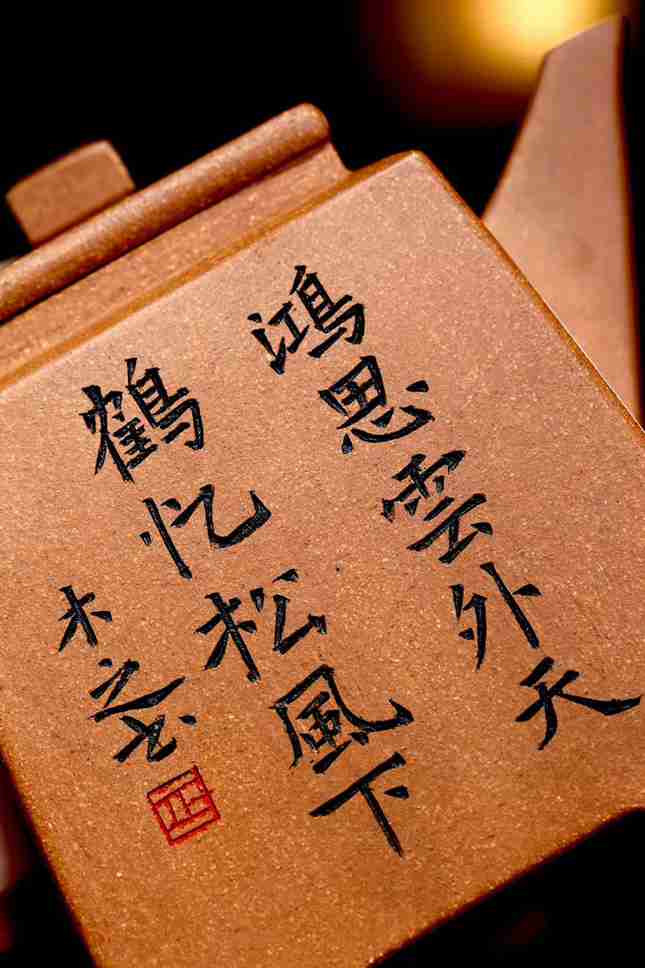 鴻思雲外天
鶴忆松風下
木